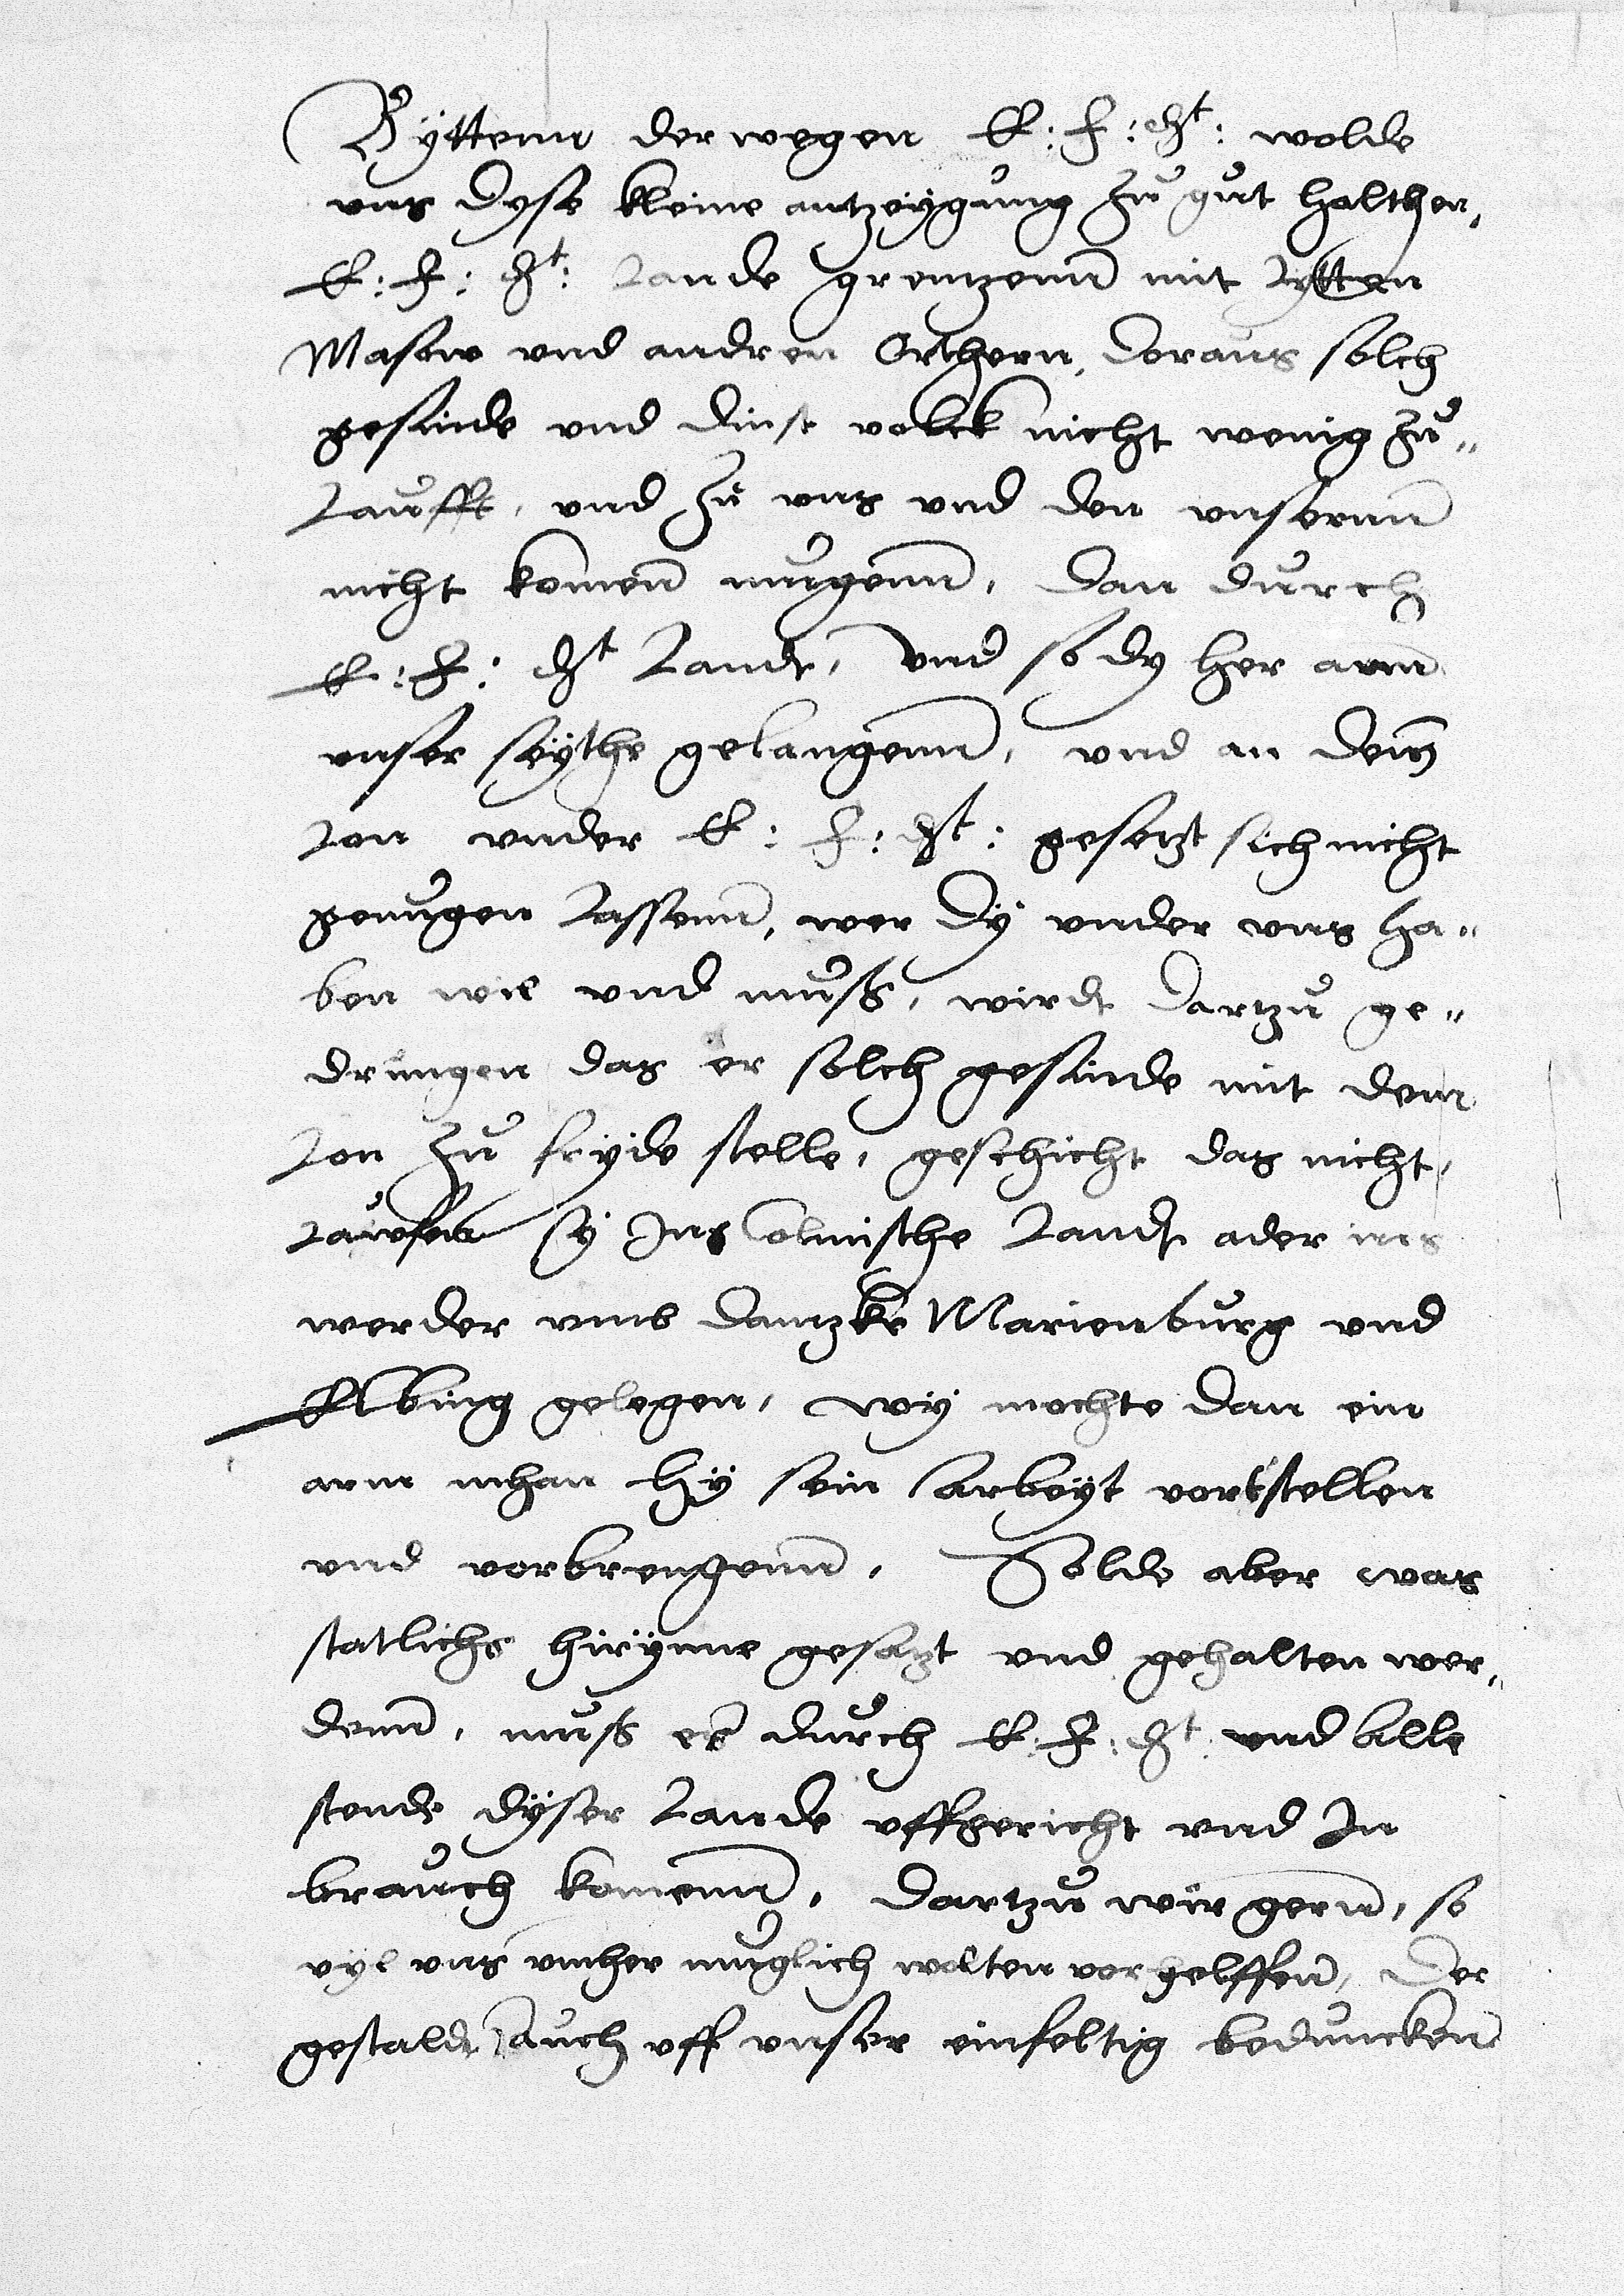 Byttenn derwegen E: F: Gt: wolde
vns dyse kleine antzeygung zu gut halthen,
E: F: Gt: Lande grentzenn mit Lytten
Masow vnd andren Orthern, doraus solch
gesinde vnd dinst volck nicht wenig zu„
laufft, vnd zu vns vnd den vnserenn
nicht komen mugenn, dan durch
E: F: Gt Landt, vnd so dy her ann
vnser seythe gelangenn, vnd an dem
lon vnder E: F: Gt: gesetzt sich nicht
genugen lassenn, wer dy vnder vns ha„
ben wil vnd muß, wirdt dartzu ge„
drungen das er solch gesinde mit dem
lon zu fryde stelle, geschicht das nicht,
lauffen sy Ins Colmische Landt ader ins
werder vmb Dantzke Marienburg vnd
Elbing gelegen, wy mochte dan ein
arm mhan hy sein Arbeyt vortstellen
vnd vorbrengenn, Solde aber was
statlichs hirynne gesatzt vnd gehalten wer„
denn, muß es durch E: F: Gt: vnd alle
stende dyser Lande vffgericht vnd In
brauch komenn, dartzu wir gern, so
vyl vns vmher muglich wolten vorhelffen, der
gestaldt Auch vff vnser einfeltig beduncken